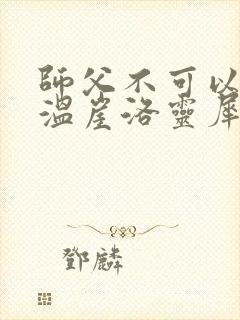 師父不可以
溫崖洛靈犀
鄧麟